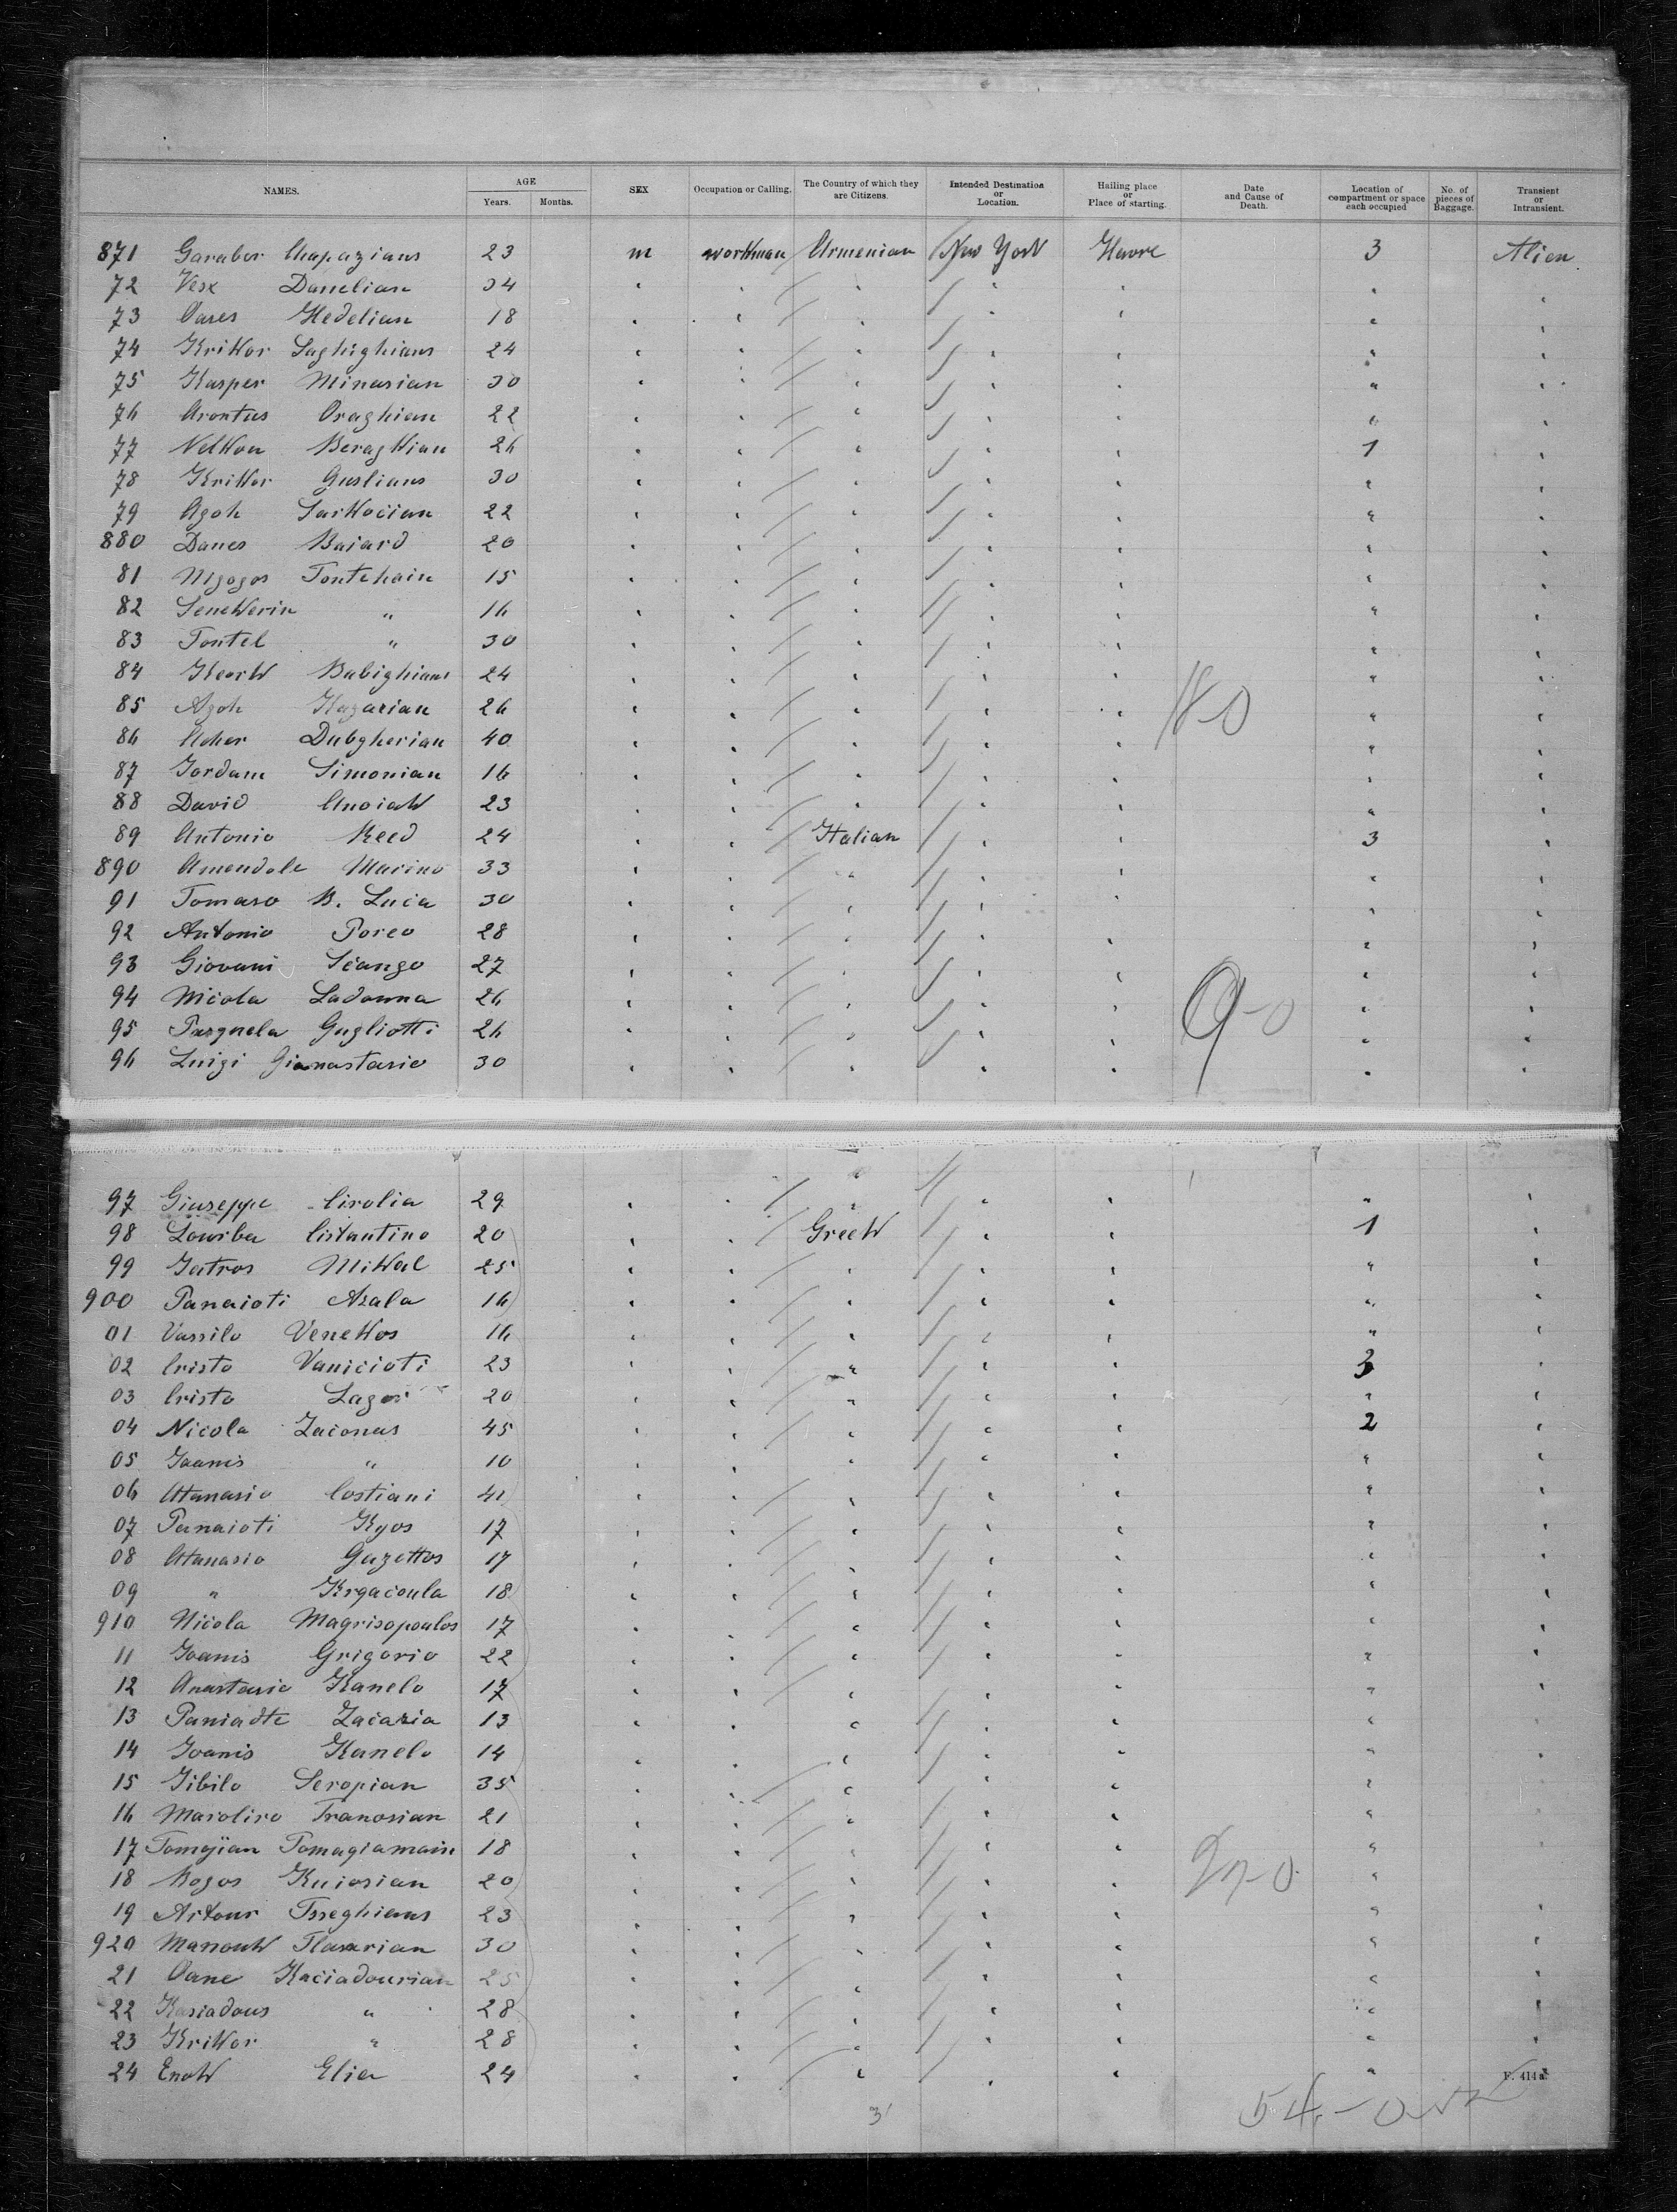 NAMES. AGE Years. Months. SEX Occupation or Calling. The Country of which they are Citizens. Intended Destination or Location. Hailing place or Place of starting. Date and Cause of Death. Location of compartment or space each occupied No. of pieces of Baggage. Transient or Intransient.
871 Garabor Chapazians 23 m workman Armenian New York Havre 3 Alien
72 Danelian 34 " " " " " " "
73 Hedelian 18 " " " " " " "
74 Krikor Saghighians 24 " " " " " " "
75 Kasper Minasian 30 " " " " " " "
76 Oraghian 22 " " " " " " "
77 Beraghian 26 " " " " " 1 "
78 Krikor Guslians 30 " " " " " " "
79 Agoh Sarkocian 22 " " " " " " "
880 Danes Baiard 20 " " " " " " "
81 Mgogos Tontchain 15 " " " " " " "
82 Senekerin " 16 " " " " " " "
83 Tontel " 30 " " " " " " "
84 Keork Babighians 24 " " " " " " "
85 Agoh Kazarian 26 " " " " " " "
86 Acher Dubgherian 40 " " " " " " "
87 Jordam Simonian 16 " " " " " " "
88 David 23 " " " " " " "
89 Antonio Reed 24 " " Italian " " 3 "
890 Amendole Marino 33 " " " " " " "
91 Tomaso B. Lucia 30 " " " " " " "
92 Antonio Porco 28 " " " " " " "
93 Giovani Sciango 27 " " " " " " "
94 Nicola Ladonna 26 " " " " " 9-0 " "
95 Pasquela Gugliotti 26 " " " " " " "
96 Luigi Gianastasio 30 " " " " " " "
97 Giuseppe Cirolia 29 " " " " " " "
98 Cistantino 20 " " Greek " " 1 "
99 Jatros Mikal 25 " " " " " " "
900 Panaioti Azala 16 " " " " " " "
01 Vassilo Venekos 16 " " " " " " "
02 Cristo Vanicioti 23 " " " " " 3 "
03 Cristo Lagos 20 " " " " " " "
04 Nicola Zaconas 45 " " " " " 2 "
05 Joanis " 10 " " " " " " "
06 Atanasio Costiani 41 " " " " " " "
07 Panaioti Kyos 17 " " " " " " "
08 Atanasio Gazettos 17 " " " " " " "
09 " Krgacoula 18 " " " " " " "
910 Nicola Magrisopoulos 17 " " " " " " "
11 Joanis Grigorio 22 " " " " " " "
12 Anastasio Kanelo 17 " " " " " " "
13 Zacazia 13 " " " " " " "
14 Joanis Kanelo 14 " " " " " " "
15 Jibilo Seropian 35 " " " " " " "
16 Tranosian 21 " " " " " " "
17 Tomajian Tomagiamain 18 " " " " " " "
18 Bogos Kuiosian 20 " " " " " 27-0 " "
19 Artour Tsseghians 23 " " " " " " "
920 Manouk 30 " " " " " " "
21 Oane Kaciadourian 25 " " " " " " "
22 Kasiadous " 28 " " " " " " "
23 Krikor " 28 " " " " " " "
24 Enok Elia 24 " " " " " " F. 414a
3 54-0